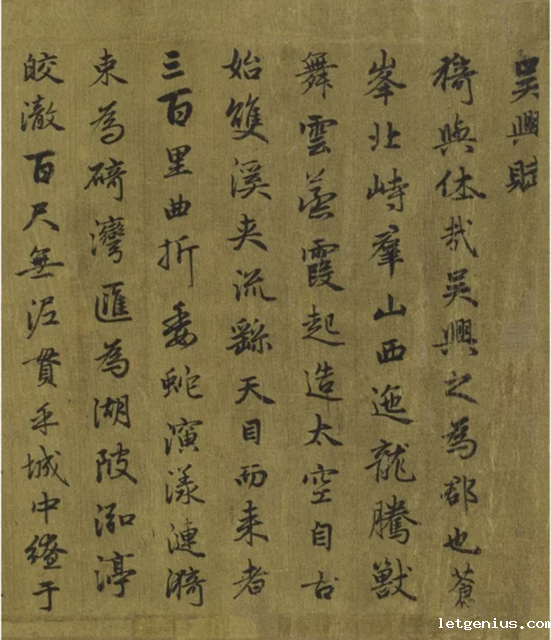 吳興賦
猗與休哉吳興之為郡也蒼
峯北峙羣山西迤龍騰獸
舞雲蒸霞起造太空自古
始雙溪夾流繇天目而来者
三百里曲折委蛇演漾漣漪
束為碕灣匯為湖陂泓渟
皎澈百尺無泥貫乎城中繚于
letgenius.com